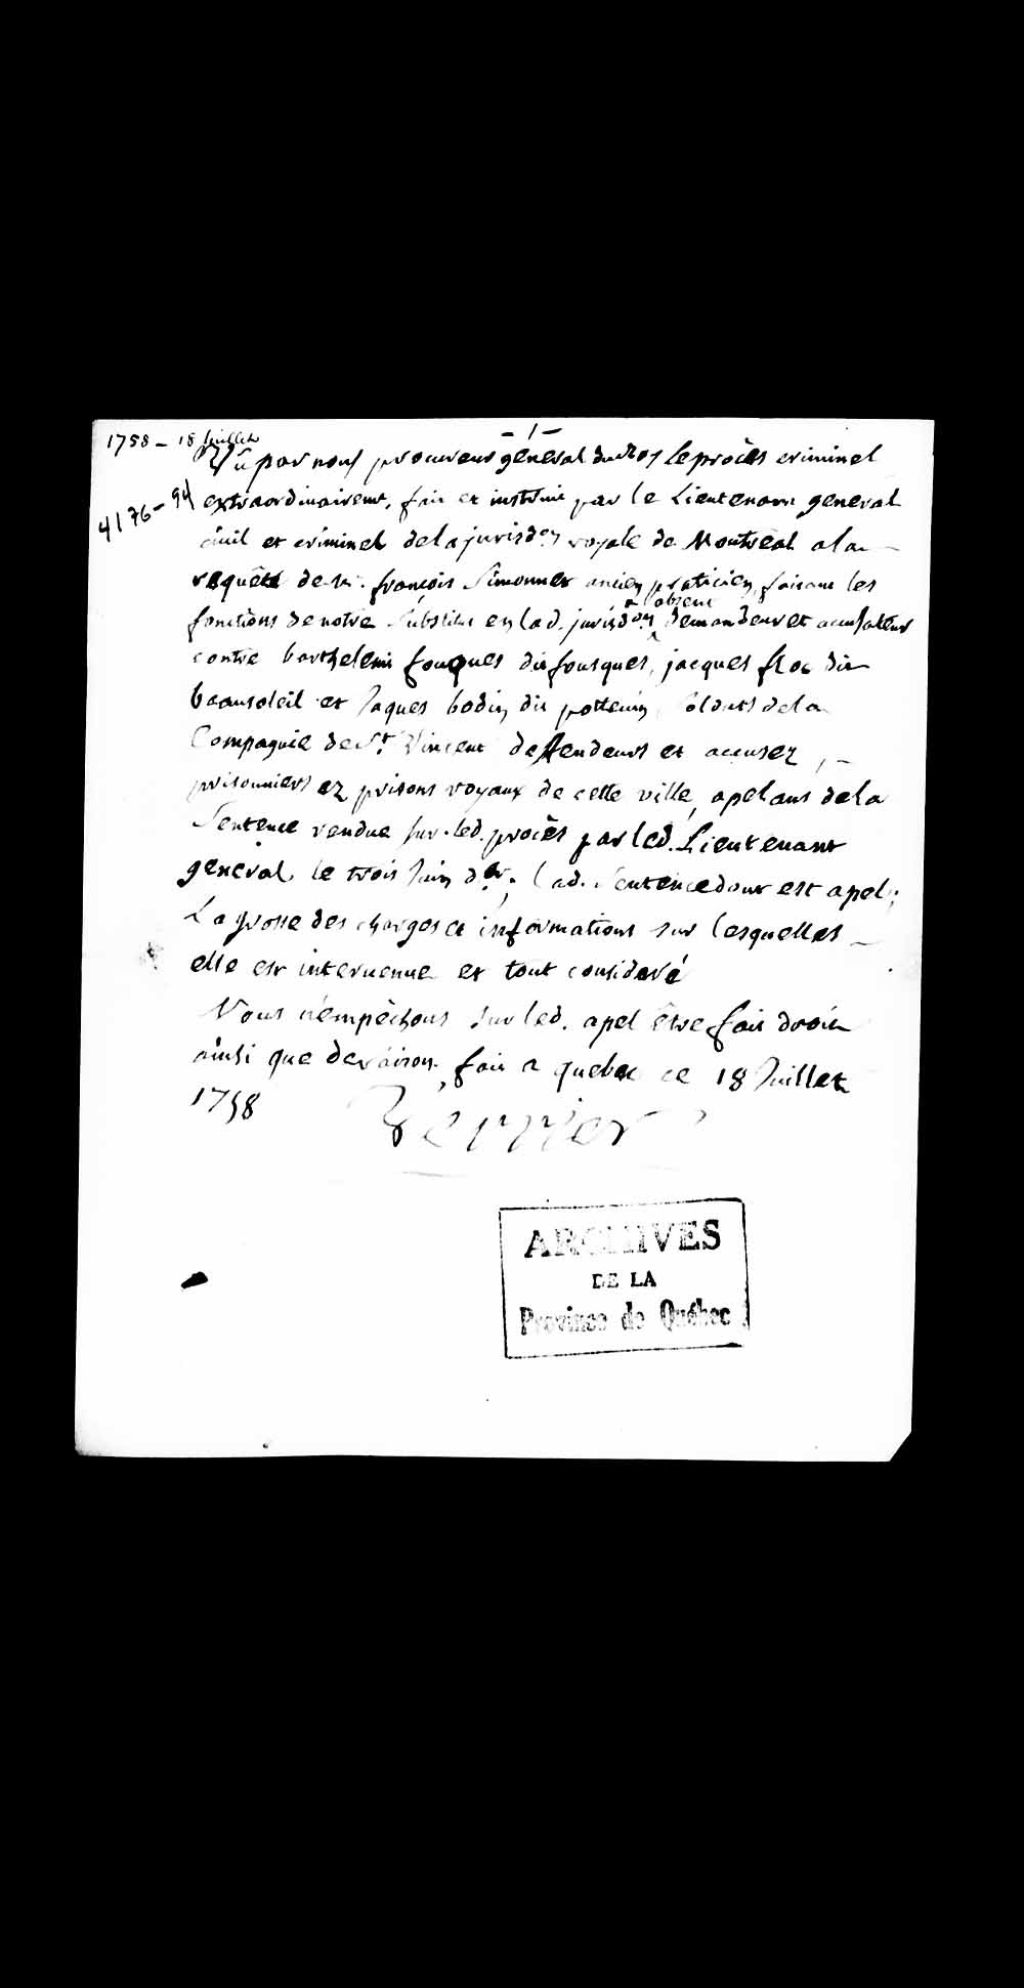 - 1 -
1758 - 18 Juillet
Vû par nous procureur général du Roy le procès criminel
4176-94
extraordinairemt. fait et instruit par le Lieutenant general
civil et criminel de la jurisdon royale de Montréal a la
requête de Mr. françois Simonnet ancien praticien faisant les
fonctions de notre Substitut en lad. jurisdon absent demandeur et accusateur
contre barthelemi fouques dit fousques, jacques floc dit
beausoleil et Jaques bodin dit potteuin Soldats de la
Compagnie de St. Vincent deffendeurs et accusez,
prisonniers ez prisons royaux de cette ville, apelans de la
Sentence rendue sur led. procès par led. Lieutenant
general le trois Juin der. lad. Sentence dont est apel;
La grosse des charges et informations sur lesquelles
elle est intervenue et tout consideré
Nous n'empêchons sur led. apel être fait droit
ainsi que de raison. fait a quebec ce 18 Juillet
1758
Verrier
ARCHIVES
DE LA
Province de Québec